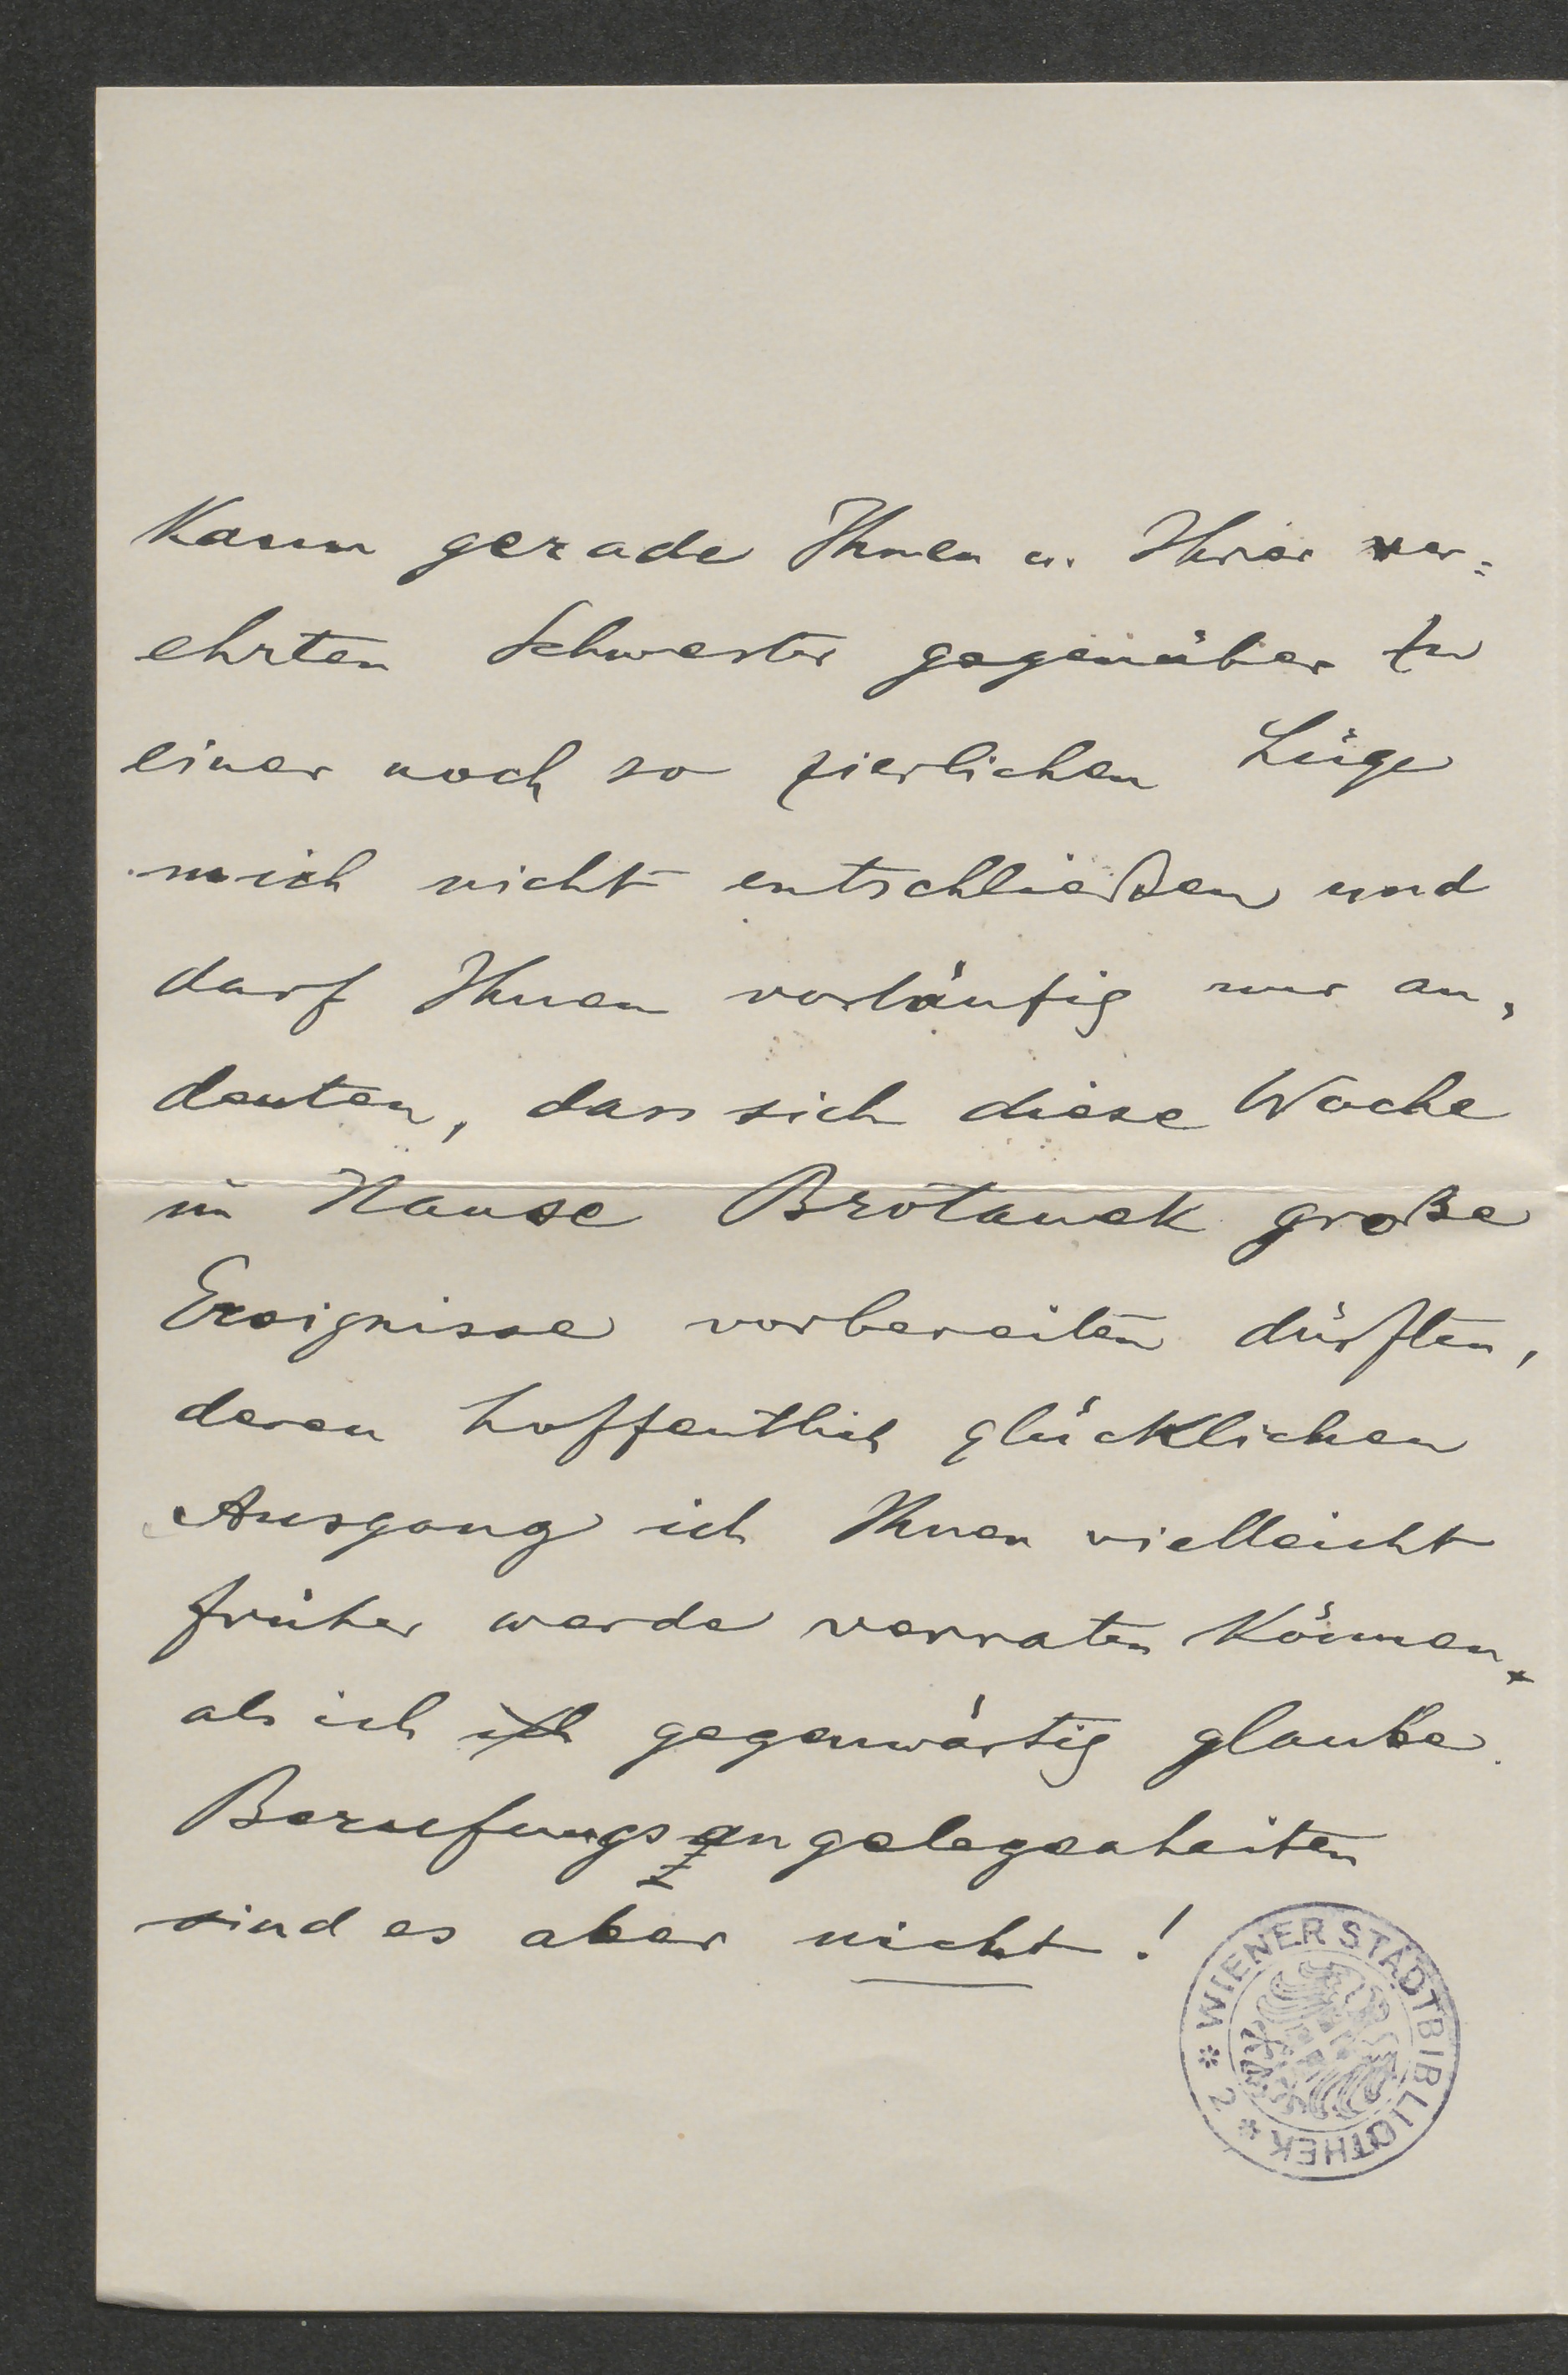 kann gerade Ihnen u. Ihrer ver=
ehrten Schwester gegenüber zu
einer noch so zierlichen Lüge
mich nicht entschließen und
darf Ihnen vorläufig nur an,
deuten, dass sich diese Woche
im Hause Brotanek große
Ereignisse vorbereiten dürften,
deren hoffentlich glücklichen
Ausgang ich Ihnen vielleicht
früher werde verraten können,
als ich ich gegenwärtig glaube.
Berufungsangelegenheiten
sind es aber nicht!
* WIENER STADTBIBLIOTHEK * 2